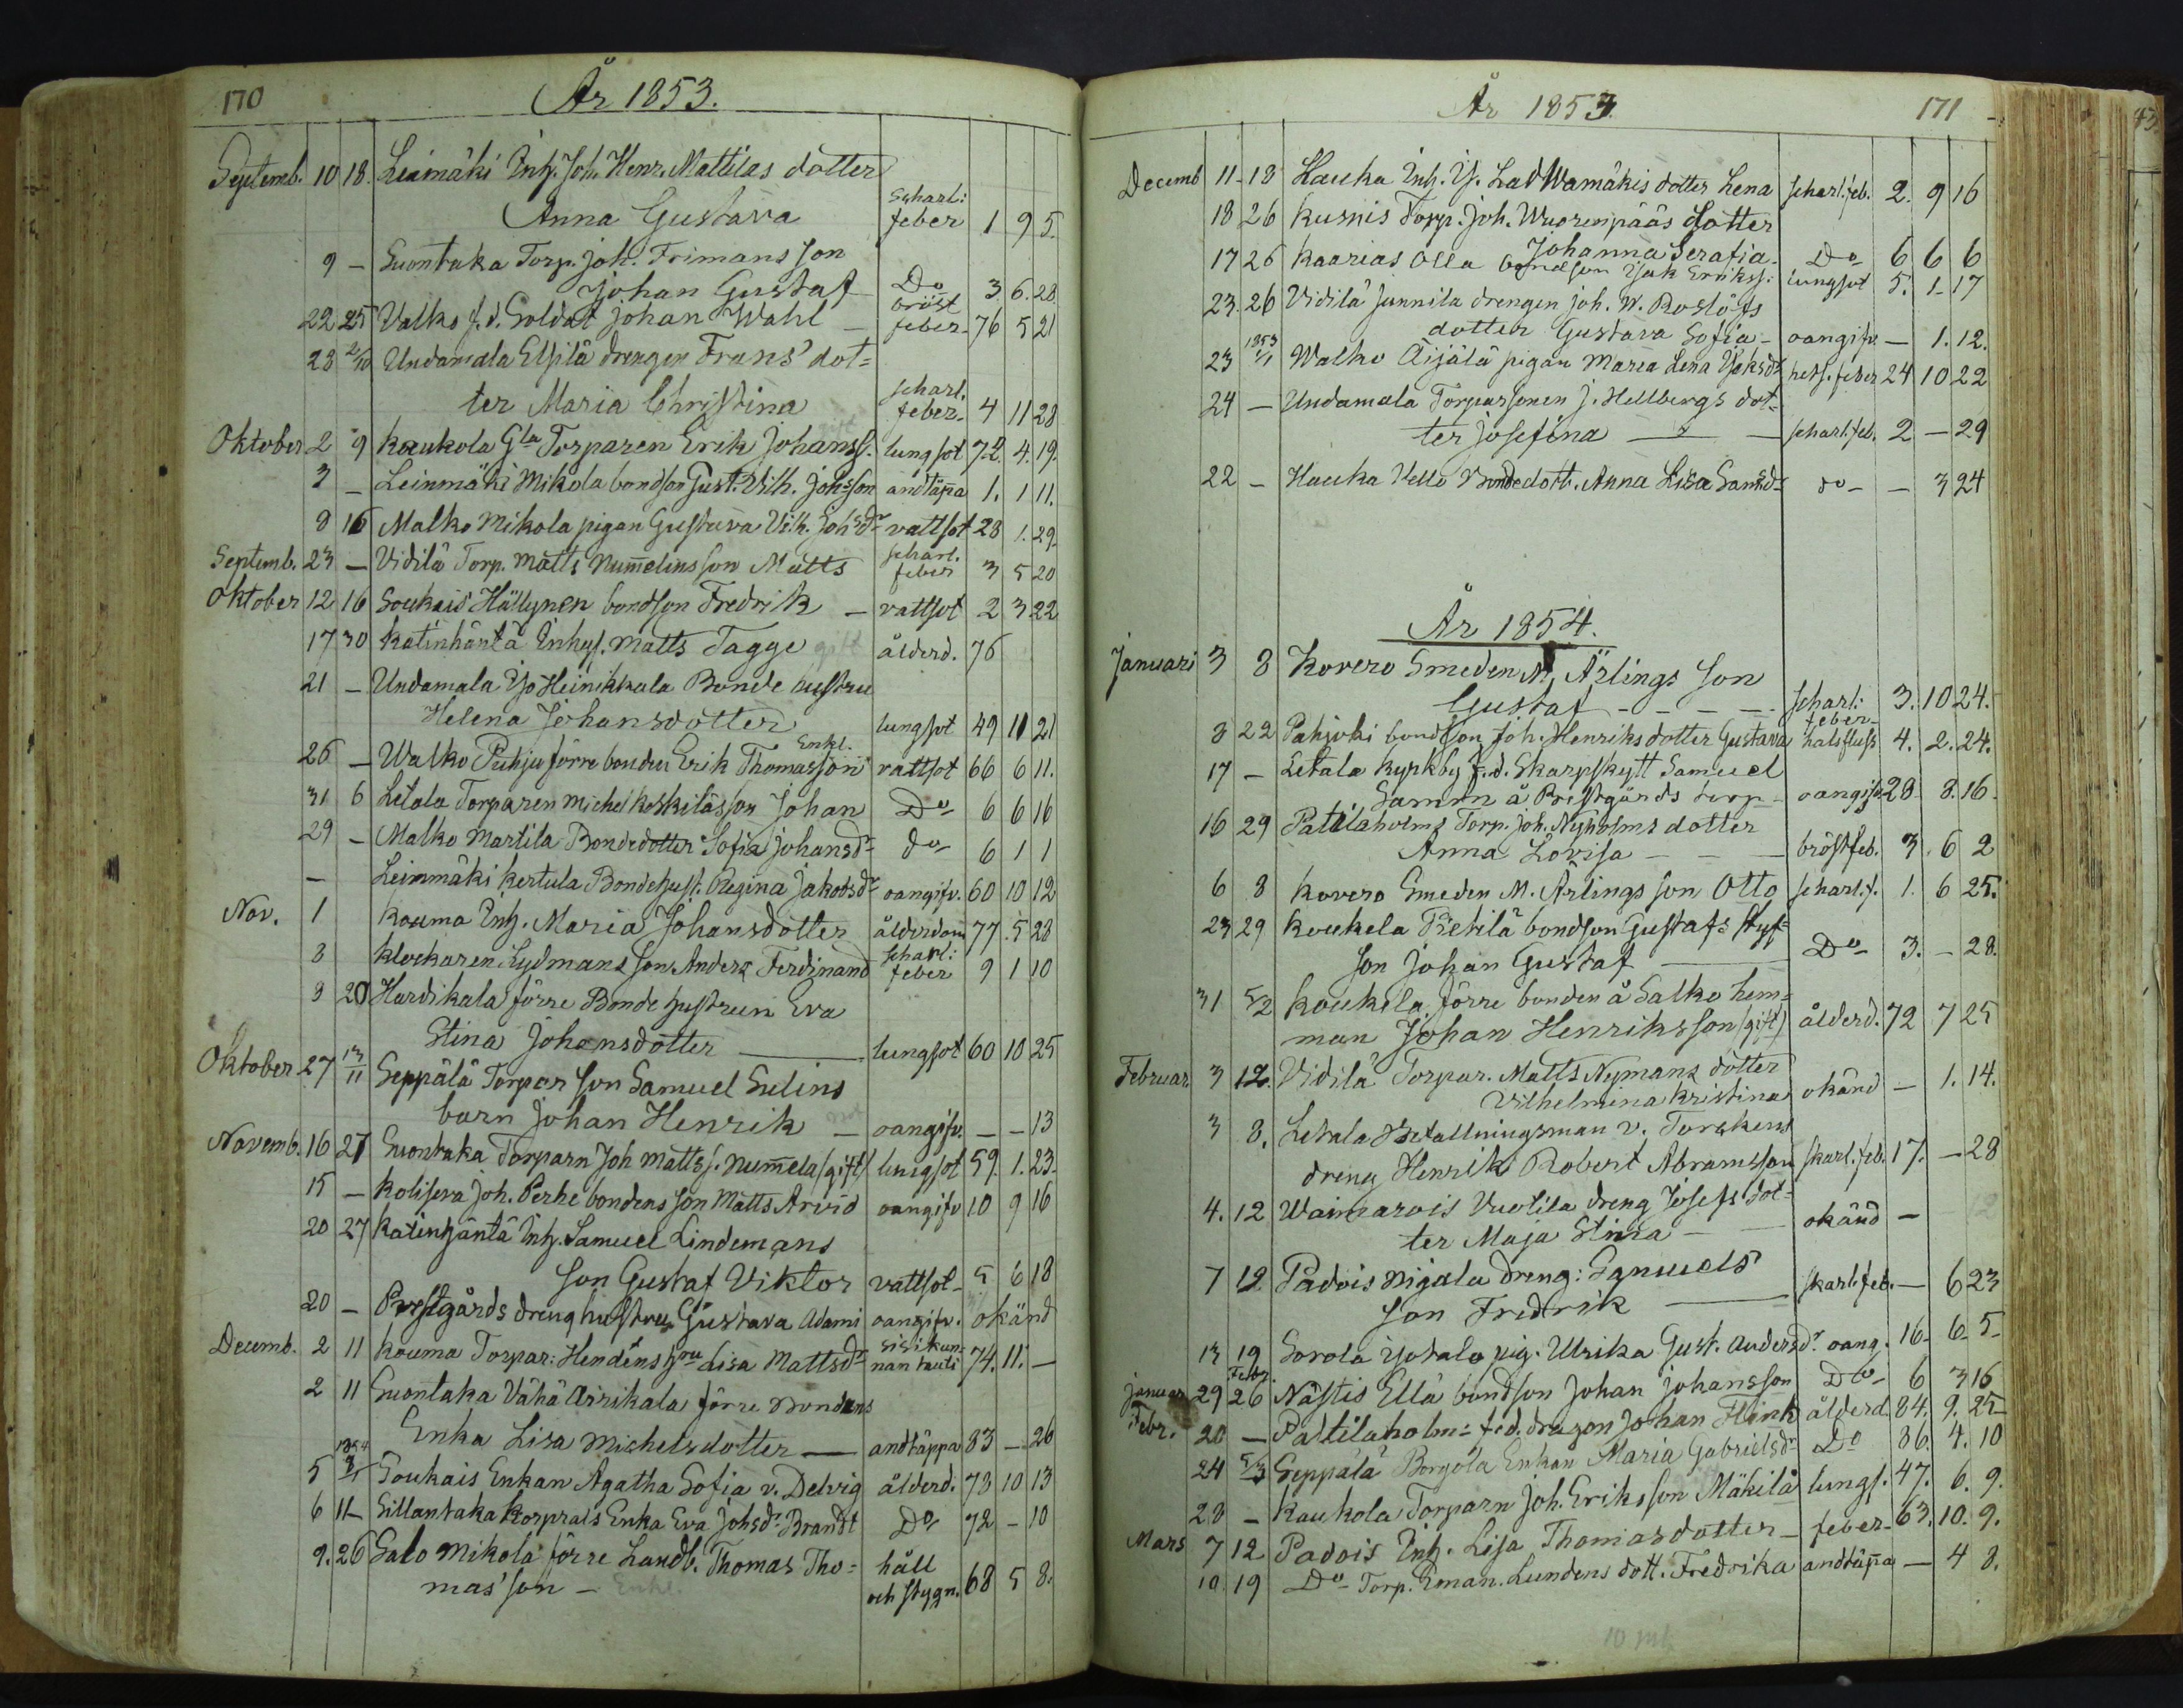 170 År 1853.
Septemb. 10 18. Leimäki Inh. Joh. Henr. Mattilas dotter
Anna Gustava Scharl: feber 1 9 5.
9 – Suontaka Torp. Joh. Frimans son
Johan Gustaf Do 3. 6. 28.
22 25 Valko f.d. Soldat Johan Wahl – bröst feber 76 5 21
28 2/10 Undamala Elsilä drengen Frans' dot=
ter Maria Christina scharl. feber 4 11 28
Oktober 2 9 Kaukola Gla Torparen Erik Johanss. gift lungsot 72. 4. 19.
3 – Leinmäki Mikola bondson Gust. Vilh. Johsson andtäppa 1. 1 11.
8 16 Malko Mikola pigan Gustava Vilh. Johsdr vattsot 28 1. 29.
Septemb. 23 – Vidilä Torp. Matts Numelins son Matts scharl. feber 3 5 20
Oktober 12 16 Soukais Hällynen bondson Fredrik – vattsot 2 3 22
17 30 Katinhäntä Inhys. Matts Tagge gift ålderd. 76
21 – Undamala Yo Heinikkala Bonde hustru
Helena Johansdotter lungsot 49 11 21
26 – Walko Puhju förre bonden Erik Thomasson Enkl. vattsot 66 6 11.
31 6 Letala Torparen Michel Koskiläs son Johan Do 6 6 16
29 – Malko Martila Bondedotter Sofia Johansdr do 6 1 1
– Leinmäki Kertula Bondehust. Regina Jakobsdr oangifv. 60 10 12
Nov. 1 Kouma Inh. Maria Johansdotter ålderdom 77. 5 28
3 Klockaren Lydmans son Anders Ferdinand scharl: feber 9 1 10
8 20 Hardikala förre Bonde hustrun Eva
Stina Johansdotter lungsot 60 10 25
Oktober 27 13/11 Seppälä Torpar son Samuel Selins
barn Johan Henrik – oangifv. – – 13
Novemb. 16 27 Suontaka Torparn Joh Mattss. Numela (gift) lungsot 59. 1. 23.
15 – Kolisera Joh. Perhe bondens son Matts Arvid oangifv 10 9 16
20 27 Katinhäntä Inh. Samuel Lindemans
son Gustaf Viktor vattsot 5 6 18
20 – Prestgårds dreng hustru Gustava Adami oangifv. okänd
Decemb. 2 11 Kouma Torpar: Hendéns hru Lisa Mattsdr sisikunnan tauti 74. 11. –
2 11 Suontaka Vähä Arrikala förre Bondens
Enka Lisa Michelsdotter – andtäppa 83 – 26
5 1854 8/1 Soukais Enkan Agatha Sofia v. Delvig ålderd. 73 10 13
6 11 Sillantaka Korprals Enka Eva Johsdr Brandt Do 72 – 10
9. 26 Salo Mikola förre Landb. Thomas Tho=
mas'son – Enkl. håll och stygn. 68 5 8.
År 1853. 171
Decemb 11 18 Hauka Inh. Is. Lad Wamäkis dotter Lena scharl. feb. 2. 9 16
18 26 Kurnis Torp. Joh. Wuorenpääs dotter
Johanna Serafia Do 6 6 6
17 26 Kaarias Olla bondson Isak Erikss. lungsot 5. 1 17
23. 26 Vidilä Junnila drengen Joh. W. Roslöfs
dotter Gustava Sofia – oangifv. – 1. 12.
23 1853 1/1 Walko Äijälä pigan Maria Lena Isaksdr hets. feber 24 10 22
24 – Undamala Torparsonen J. Hellbergs dot=
ter Josefina – scharl. feb. 2 – 29
22 – Hauka Kello Bondedott. Anna Lisa Samsdr do – 3 24
År 1854.
Januari 3 8 Kovero Smeden M. Ärlings son
Gustaf – – – scharl: feber 3. 10 24.
8 22 Pahjoki bondson Joh. Henriks dotter Gustava halsfluss 4. 2. 24.
17 – Letala Kyrkby f.d. Skarpskytt Samuel
Samm å Prestgårds torp – oangifv 28 8. 16.
16 29 Patilaholms Torp. Joh. Nyholms dotter
Anna Lovisa – – bröstfeb. 3. 6 2
6 8 Kovero Smeden M. Ärlings son Otto scharl. f. 1. 6 25.
23 29 Koukela Pietilä bondson Gustafs styf=
son Johan Gustaf – Do 3. – 28.
31 5/2 Koukela förre bonden å Salko hem=
man Johan Henriksson (gift) ålderd. 72 7 25
Februar. 3 12. Vidilä Torpar. Matts Nymans dotter
Vilhelmina Kristina okänd – 1. 14.
3 8. Letala Befallningsman v. Torckens
dreng Henrik Robert Abramsson skarl. feb. 17. – 28
4. 12 Waimarois Vuolila dreng Josefs dot=
ter Maja Stina – okänd – 12
7 12 Padois Nigala dreng: Samuels
son Fredrik – skarl. feb. – 6 23
13 19 Sorola Yotala pig. Ulrika Gust. Andersdr oang. 16. 6. 5.
Januar 29 Febr. 26 Nästis Ellä bondson Johan Johansson Do 6 3 16
Febr. 20 – Pattilaholm: f.d. dragon Johan Flink ålderd. 84. 9. 25
24 5/3 Seppälä Borgöla Enkan Maria Gabrielsdr Do 86. 4. 10
28 – Kaukola Torparn Joh. Eriksson Mäkilä lungs. 47. 6. 9.
Mars 7 12 Padois Inh. Lisa Thomasdotter – feber 63. 10. 9.
10 19 Do Torp. Eman. Lundens dott. Fredrika andtäppa – 4 8.